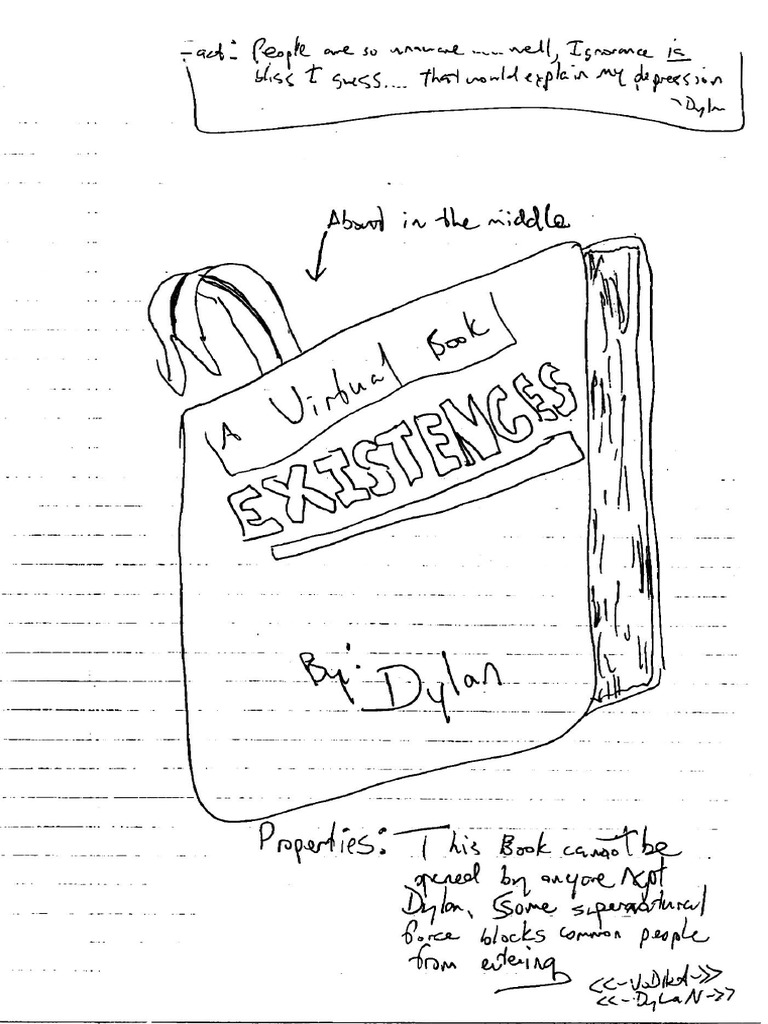 Fact: People are so unaware.... well, Ignorance is
bliss I guess.... that would explain my depression
~Dylan
About in the middle
A Virtual Book
EXISTENCES
By: Dylan
Properties: This Book cannot be
opened by anyone xept
Dylan, Some supernatural
force blocks common people
from entering
<<-VoDkA->>
<<-DyLaN->>